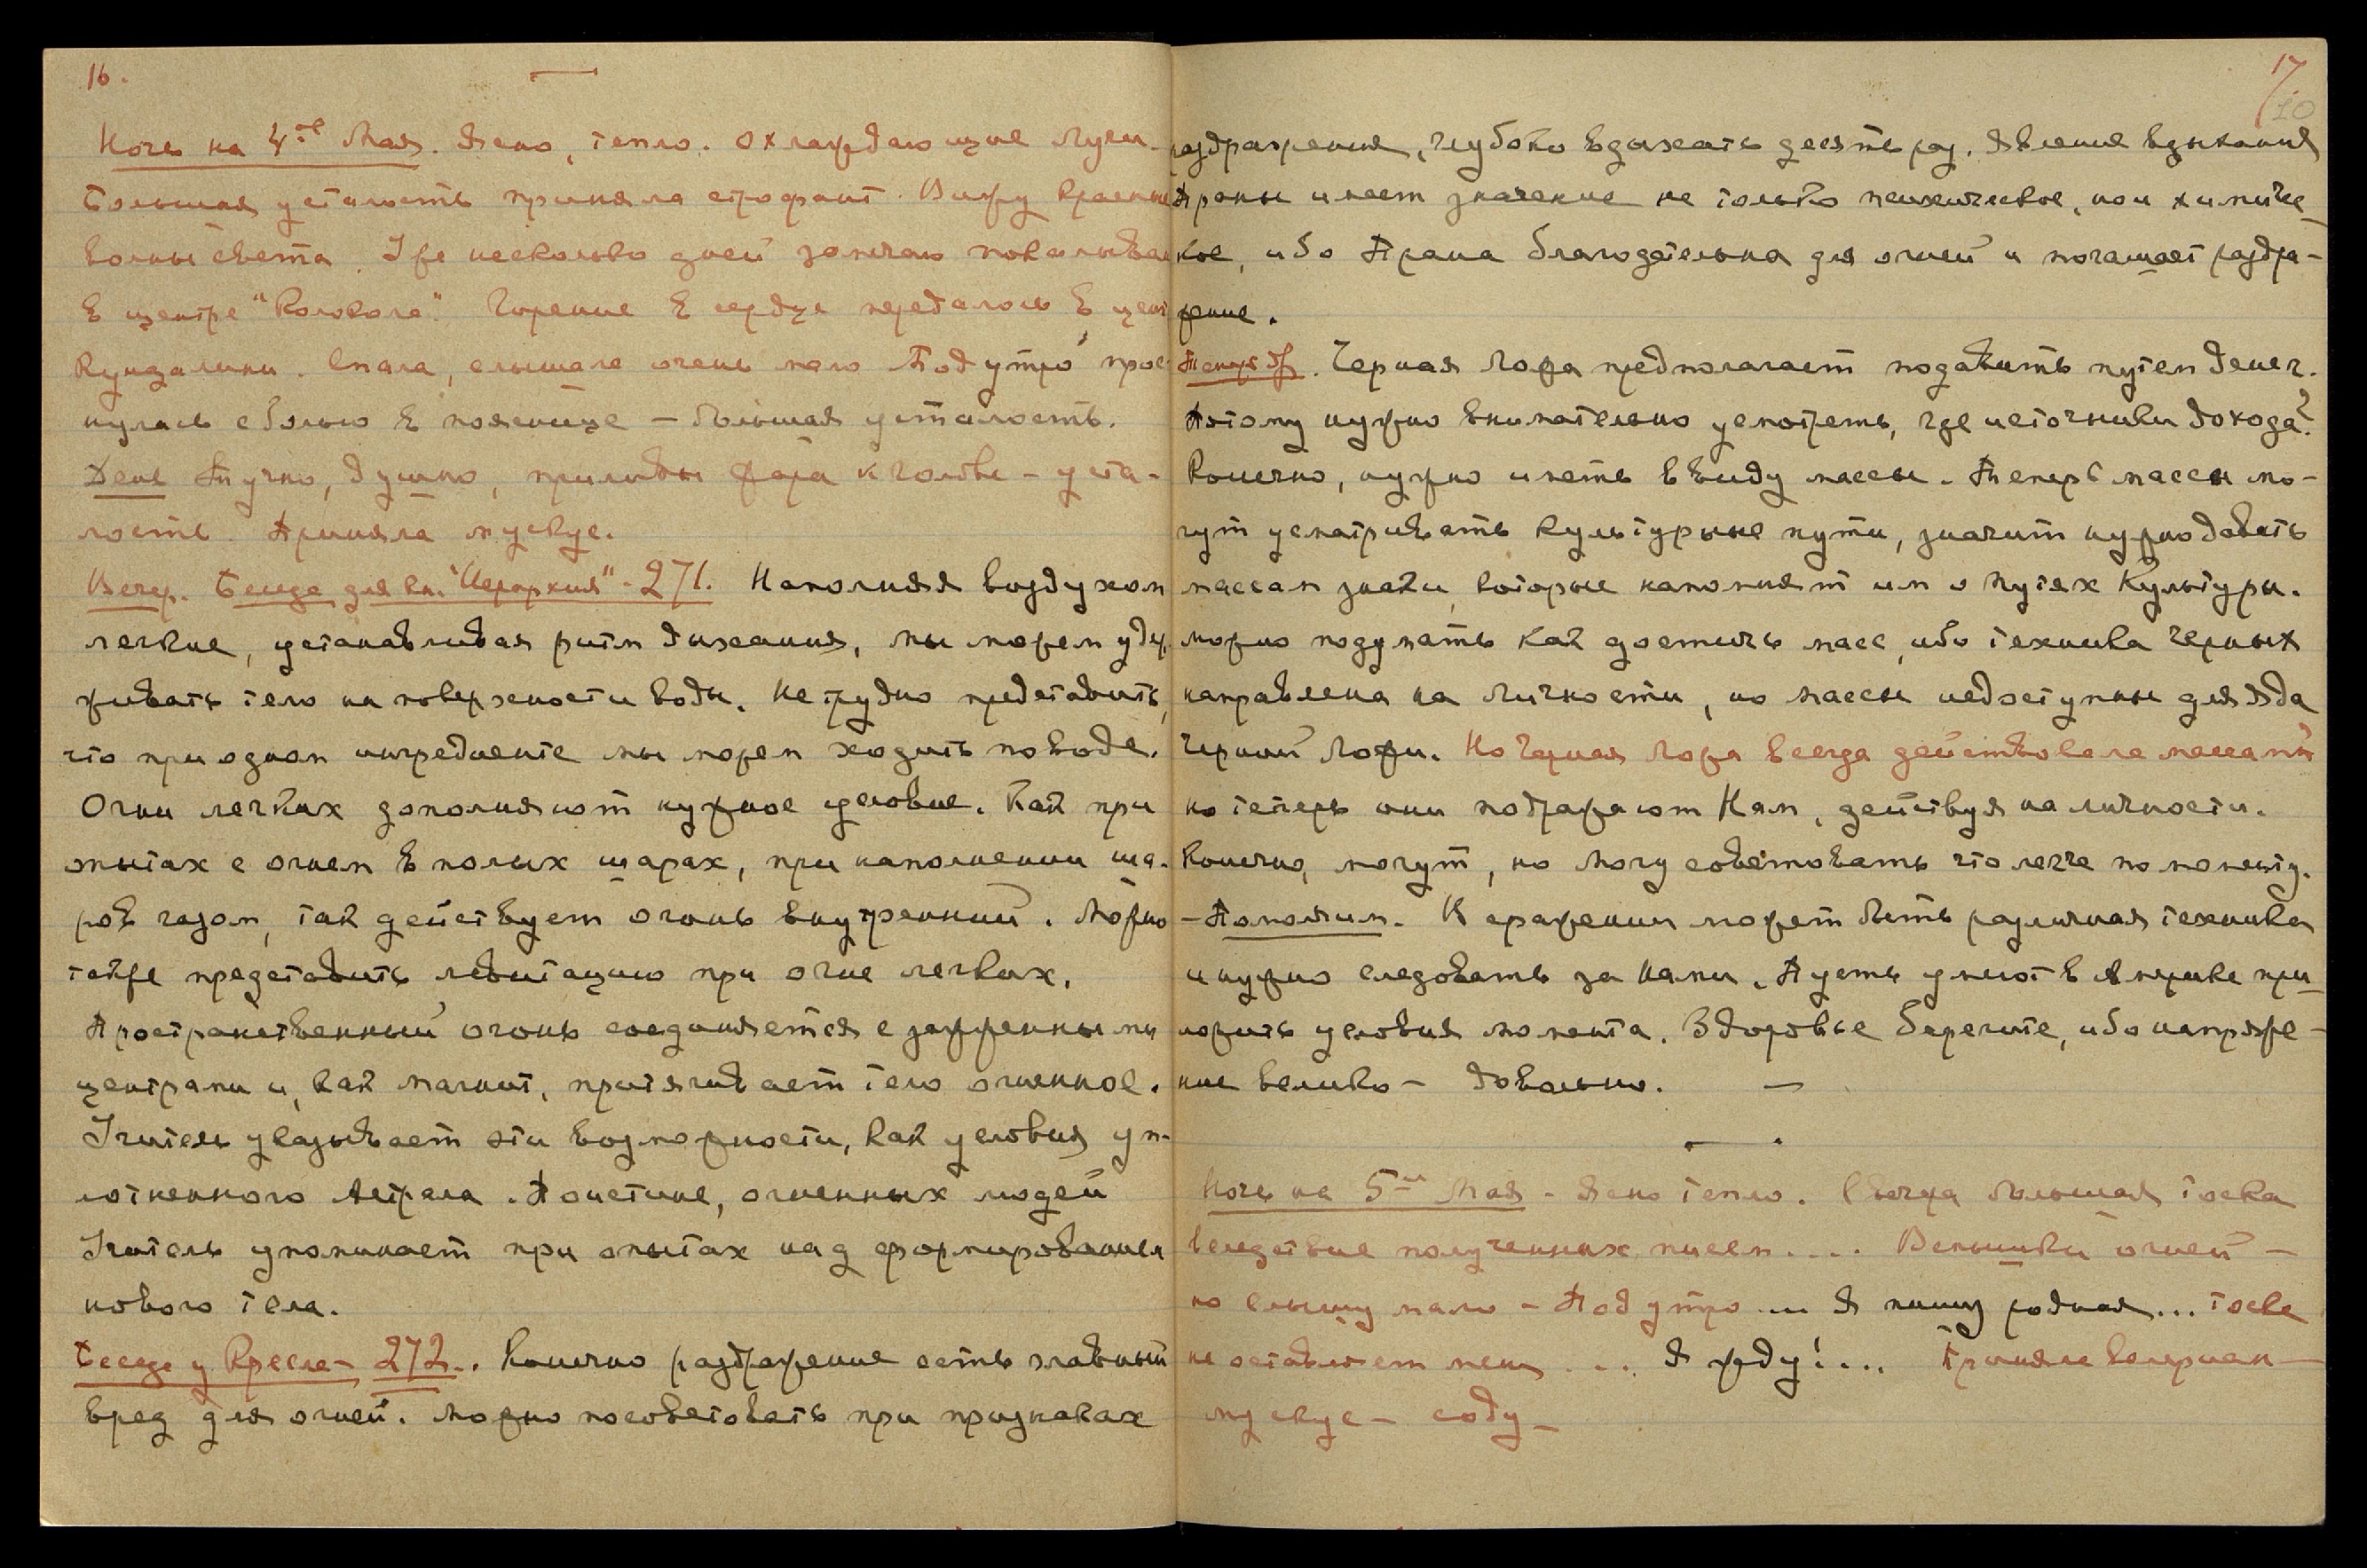 16.
Ночь на 4ое Мая. Ясно, тепло. Охлаждающие лучи.
Большая усталость приняла строфант. Вижу красные
волны света. Уже несколько дней замечаю покалыван
в центре "Колокола". Горение в сердце передалось в цент
Кундалини. Спала, слышала очень мало Под утро прос
нулась с болью в пояснице – большая усталость.
День Тучно, душно, приливы жара к голове – уста-
лость. Приняла мускус.
Вечер. Беседа для кн. "Иерархия" - 271. Наполняя воздухом
легкие, устанавливая ритм дыхания, мы можем удер.
живать тело на поверхности воды. Не трудно представить,
что при одном ингредиенте мы можем ходить по воде.
Огни легких дополняют нужное условие. Как при
опытах с огнем в полых шарах, при наполнении ша-
ров газом, так действует огонь внутренний. Можно
также представить левитацию при огне легких.
Пространственный огонь соединяется с зажженными
центрами и, как магнит, притягивает тело огненное.
Учитель указывает эти возможности, как условия уп-
лотненного Астрала. Поистине, огненных людей
Учитель упоминает при опытах над формированием
нового тела.
Беседа у Кресла – 272.. Конечно раздражение есть главный
вред для огней. Можно посоветовать при признаках
17
10
раздражения, глубоко вдыхать десять раз. Явление вдыхания
Праны имеет значение не только психическое, но и химичес-
кое, ибо Прана благодательна для огней и погашает раздра-
жение.
Теперь др. Черная Ложа предполагает подавить путем денег.
Потому нужно внимательно усмотреть, где источники дохода?
Конечно, нужно иметь в виду массы. Теперь массы мо-
гут усматривать культурные пути, значит нужно давать
массам знаки, которые напомнят им о путях Культуры.
можно подумать как достичь масс, ибо техника черных
направлена на личности, но массы недоступны для яда
Черной Ложи. Но Черная Ложа всегда действовала массами
но теперь они подражают Нам, действуя на личности.
Конечно, могут, но Могу советовать что легче по моменту.
– Поможем. В сражении может быть различная техника
и нужно следовать за Нами. Пусть умеют в Америке при-
ложить условия момента. Здоровье берегите, ибо напряже-
ние велико – довольно. —
Ночь на 5ое Мая – Ясно тепло. С вечера большая тоска
вследствие полученных писем.... Вспышки огней –
но слышу мало – Под утро ... Я пишу родная... тоска
не оставляет меня .... Я жду!... Приняла валериан –
мускус – соду –